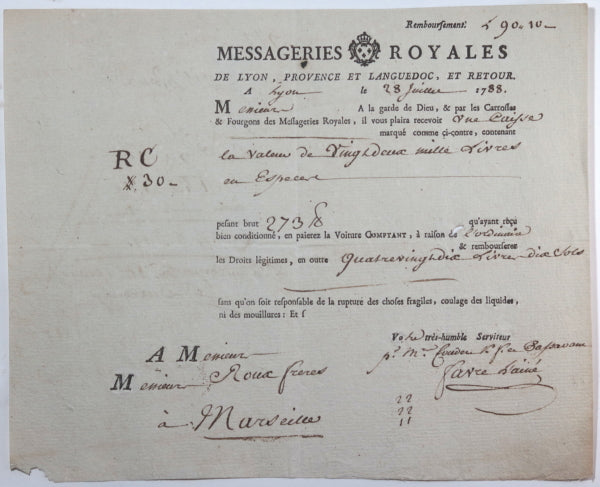 Remboursement. L 90-10-
MESSAGERIES ROYALES
DE LYON, PROVENCE ET LANGUEDOC, ET RETOUR.
A Lyon le 28 Juillet 1788.
Monsieur A la garde de Dieu, & par les Carrosses
& Fourgons des Messageries Royales, il vous plaira recevoir Une Caisse
marqué comme ci-contre, contenant
RC
X 30-
la valeur de Vingtdeux mille Livres
en Especes
pesant brut 273 lb qu'ayant reçu
bien conditionné, en paierez la Voiture COMPTANT, à raison de l'ordinaire
& rembourserez
les Droits légitimes, en outre Quatrevingtdix Livres dix Sols
sans qu'on soit responsable de la rupture des choses fragiles, coulage des liquides,
ni des mouillures: Et s
Votre très-humble Serviteur
A Monsieur
pr. Mr.
Monsieur Roux freres
Favre L'ainé
à Marseille
22
22
11